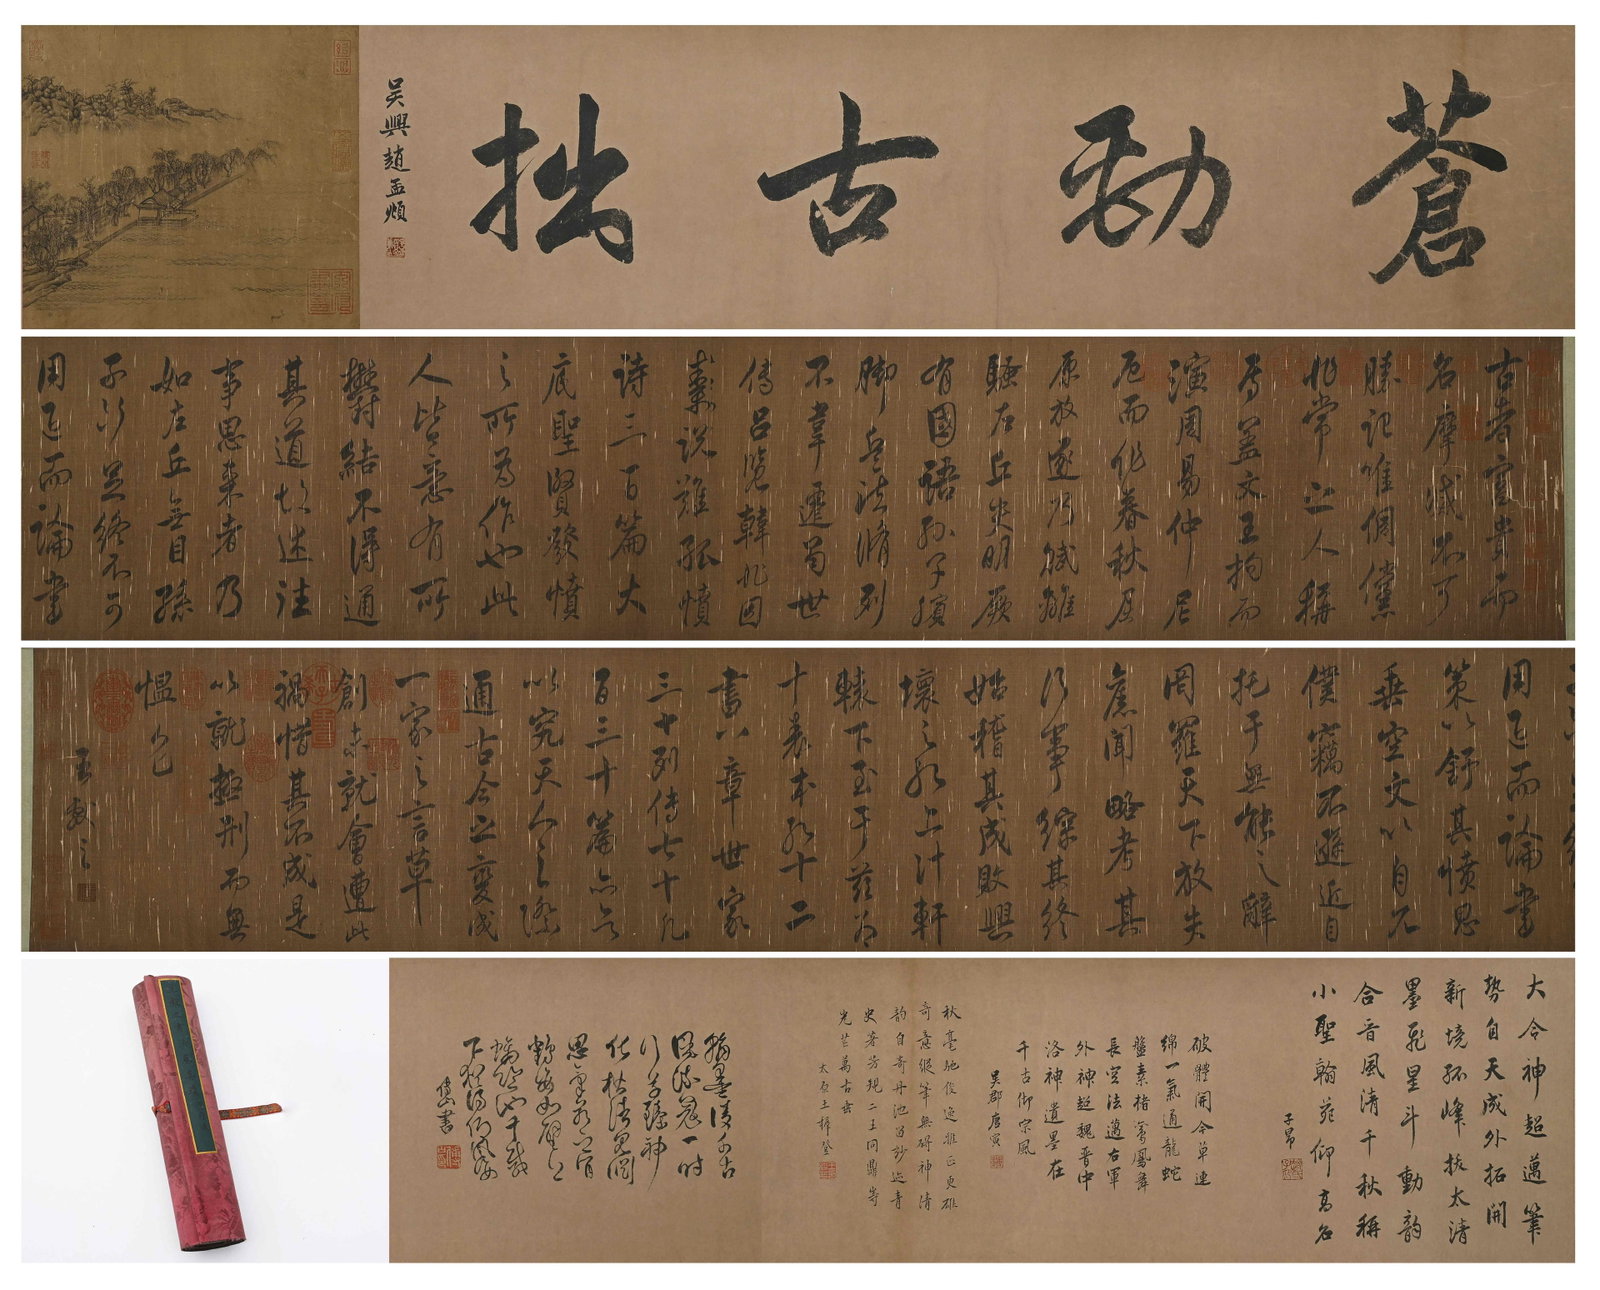 蒼勁古拙
吳興趙孟頫
古者富貴而
名摩滅不可
勝記唯倜儻
非常之人稱
焉蓋文王拘而
演周易仲尼
厄而作春秋屈
原放逐乃賦離
騷左丘失明厥
有國語孫子臏
脚兵法脩列
不韋遷蜀世
傳呂覽韓非囚
秦說難孤憤
詩三百篇大
底聖賢發憤
之所為作也此
人皆意有所
鬱結不得通
其道故述往
事思來者乃
如左丘無目孫
子斷足終不可
用退而論書
用退而論書
策以舒其憤思
垂空文以自見
僕竊不遜近自
托于無能之辭
罔羅天下放失
舊聞略考其
行事綜其終
始稽其成敗興
壞之紀上計軒
轅下至于茲為
十表本紀十二
書八章世家
三十列傳七十凡
百三十篇亦欲
以究天人之際
通古今之變成
一家之言草
創未就會遭此
禍惜其不成是
以就極刑而無
慍色
王獻之
大令神超邁筆
勢自天成外拓開
新境孤峰拔太清
墨飛星斗動韻
合音風清千秋稱
小聖翰苑仰高名
子昂
破體開今草連
綿一氣通龍蛇
盤素楮鸞鳳舞
長空法邁右軍
外神超魏晉中
洛神遺墨在
千古仰宗風
吳郡唐寅
秋毫馳俊逸雅正更雄
奇意縱筆無碍神清
韵自奇丹池留妙迹青
史著芳規二王同鼎峙
光芒萬古垂
太原王穉登
翰墨凌千古
風流冠一時
行草臻神
化枯潤見
思氣若江河
鶴海如雲上
千載
下猶得仰風姿